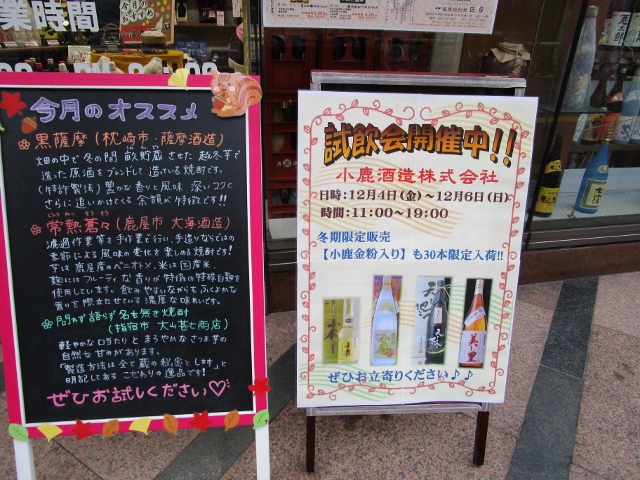 業時間
今月のオススメ
黒薩摩（枕崎市・薩摩酒造）
畑の中で冬の間 畝貯蔵させた越冬芋で
造った原酒をブレンドして造っている焼酎です。
（特許製法）豊かな香りと風味 深いコクと
さらに追いかけてくる 余韻が特徴です!!
常熱蒼々（鹿屋市 大海酒造）
濾過作業等を手作業で行い、手造りならではの
季節による風味の変化を楽しめる焼酎です！
芋は鹿屋産のベニオトメ、米は国産米、
麹にはフルーティな香りが特徴の特殊白麹を
使用しています。飲みやすいながらもふくよかな
香りを際立たせている濃厚な味わいです。
問わず語らず名も無き焼酎
（指宿市 大山甚七商店）
軽やかな口当たりと まろやかなさつま芋の
自然な甘みがあります。
「製造方法は全て蔵の秘密とします」と
明記してある こだわりの逸品です！
ぜひお試しください♡
試飲会開催中!!
小鹿酒造株式会社
日時：12月4日(金)～12月6日(日)
時間：11:00～19:00
冬期限定販売
【小鹿金粉入り】も30本限定入荷!!
美し里
ぜひお立寄りください♪♪